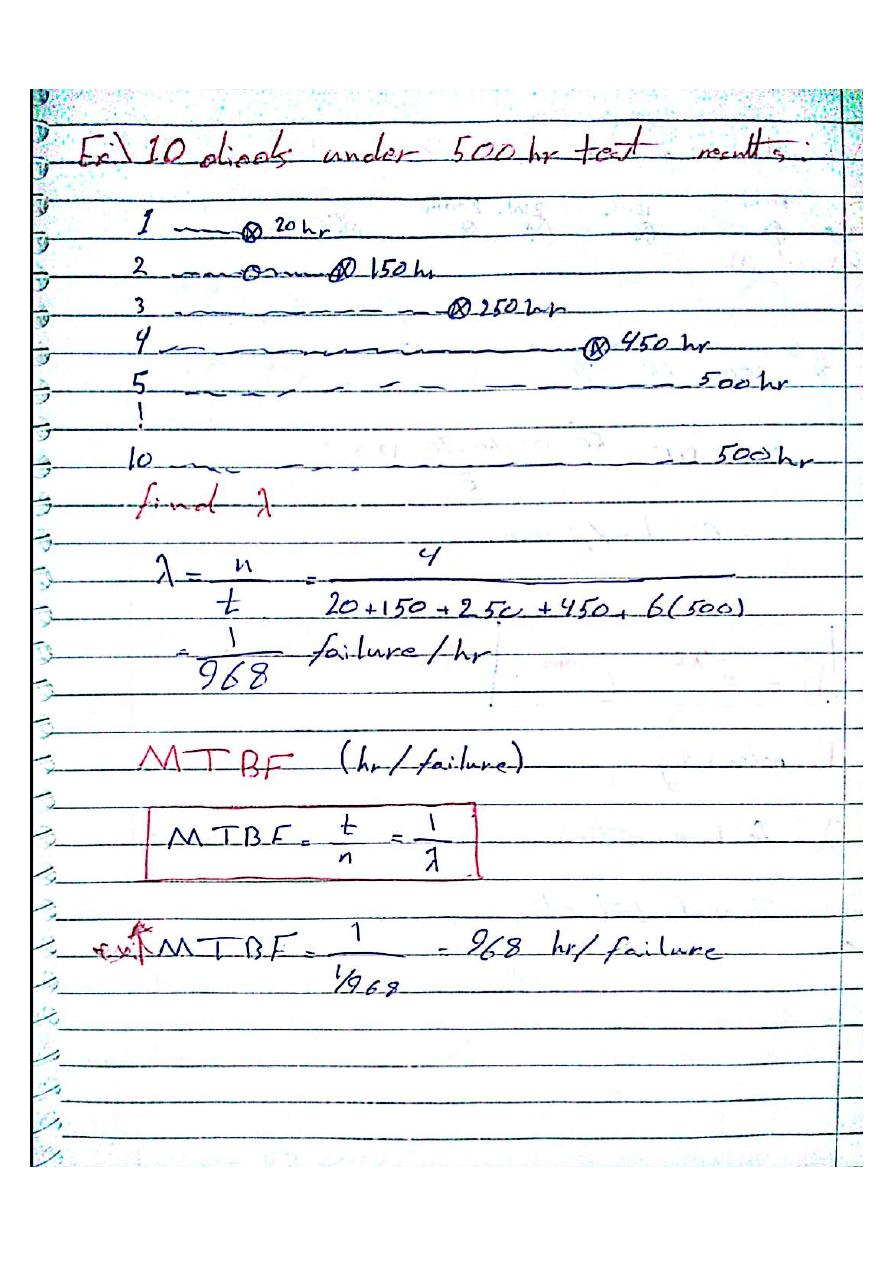 Ex:\ 10 diods under 500 hr test results:
1 20 hr
2 150 hr
3 250 hr
4 450 hr
5 500 hr
10 500 hr
find λ
λ = n/t = 4/(20+150+250+450+6(500))
= 1/968 failure/hr
MTBF (hr/failure)
MTBF = t/n = 1/λ
ex:\ MTBF = 1/(1/968) = 968 hr/failure